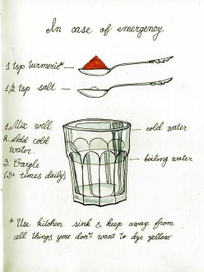 In case of emergency
1 tsp turmeric*
1/2 tsp salt
1. Mix well
2. Add cold
water.
3. Gargle
(3+ times daily)
cold water
boiling water
* Use kitchen sink & keep away from
all things you don't want to dye yellow